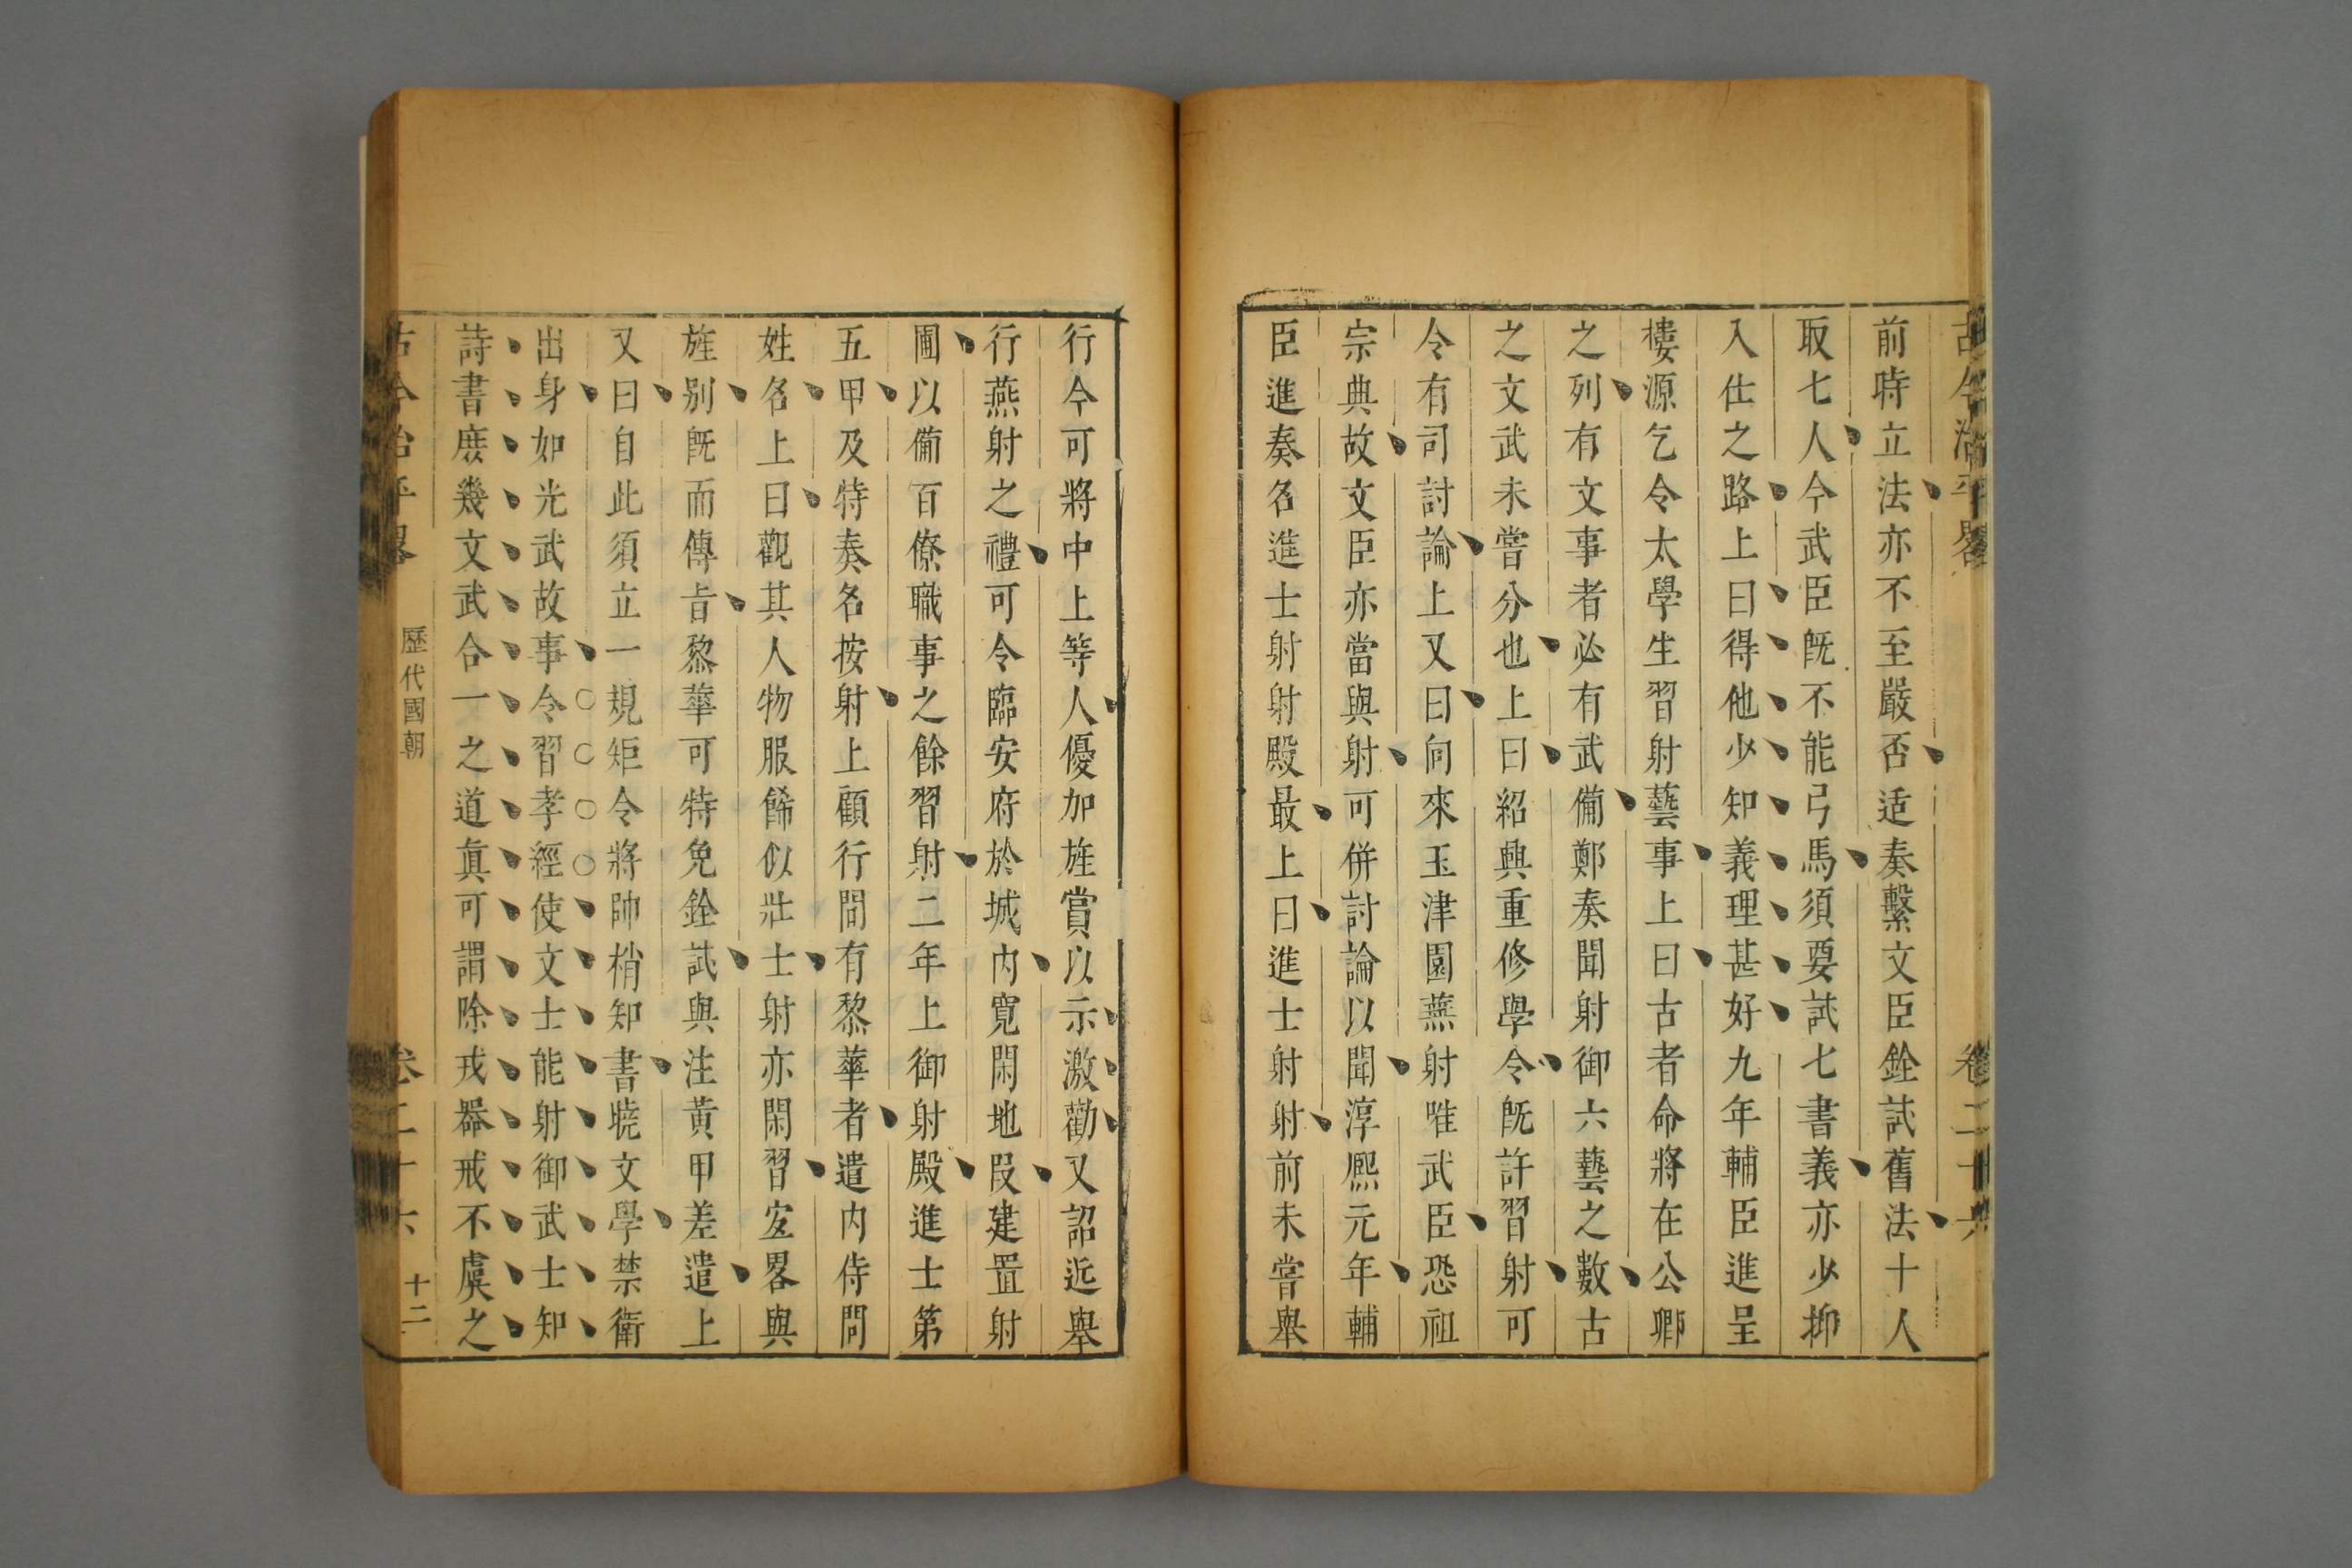 古今治平畧 卷二十六
前時立法亦不至嚴否适奏繫文臣銓試舊法十人
取七人今武臣既不能弓馬須要試七書義亦少抑
入仕之路上曰得他少知義理甚好九年輔臣進呈
樓源乞令太學生習射藝事上曰古者命將在公卿
之列有文事者必有武備鄭奏聞射御六藝之數古
之文武未嘗分也上曰紹興重修學令既許習射可
令有司討論上又曰向來玉津園燕射唯武臣恐祖
宗典故文臣亦當與射可併討論以聞淳熈元年輔
臣進奏名進士射射殿最上曰進士射射前未嘗舉
行今可將中上等人優加旌賞以示激勸又詔近舉
行燕射之禮可令臨安府於城内寛閑地段建置射
圃以備百僚職事之餘習射二年上御射殿進士第
五甲及特奏名按射上顧行間有黎華者遣内侍問
姓名上曰觀其人物服餙似壯士射亦閑習宏畧與
旌别既而傳旨黎華可特免銓試與注黃甲差遣上
又曰自此須立一規矩令將帥梢知書曉文學禁衛
出身如光武故事令習孝經使文士能射御武士知
詩書庻幾文武合一之道眞可謂除戎器戒不虞之
古今治平畧 歷代國朝 卷二十六 十二